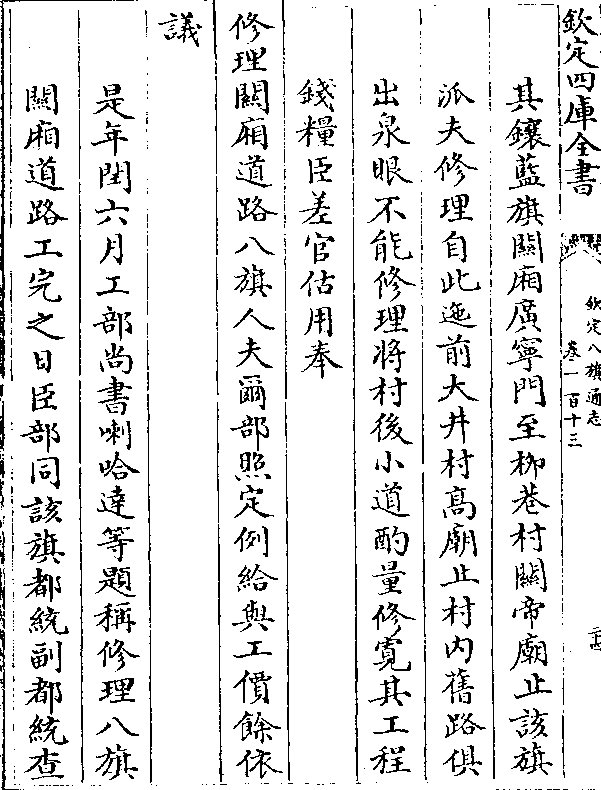 欽定四庫全書
欽定八旗通志
卷一百十三
二十四
其鑲藍旗關廂廣寧門至柳巷村關帝廟止該旗
派夫修理自此迤前大井村髙廟止村内舊路俱
出泉眼不能修理將村後小道酌量修寛其工程
錢糧臣差官估用奉
修理關廂道路八旗人夫爾部照定例給與工價餘依
議
是年閏六月工部尚書喇哈達等題稱修理八旗
關廂道路工完之日臣部同該旗都統副都統查